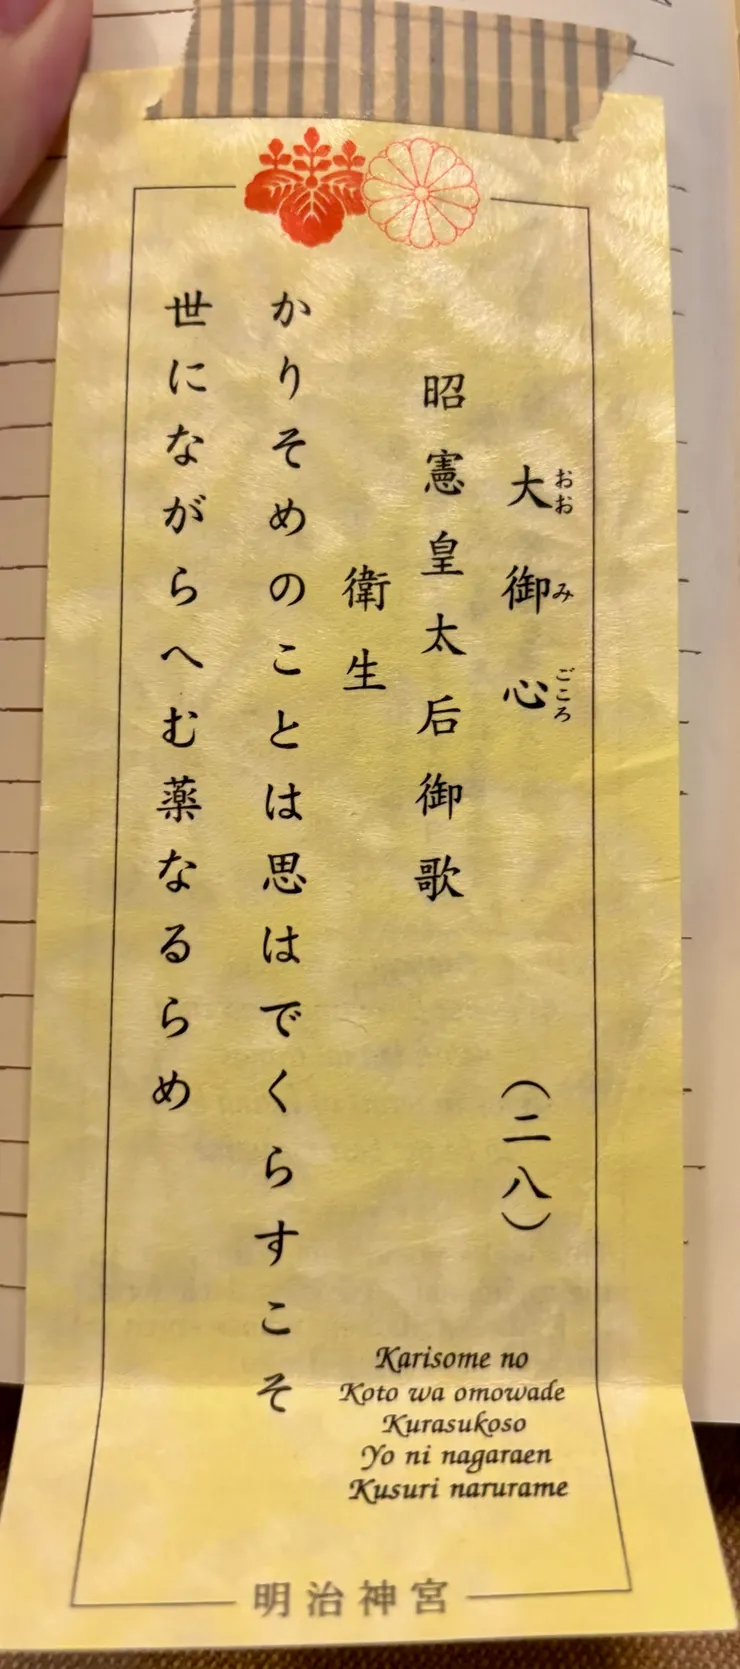 大御心
おおみごころ
（二八）
昭憲皇太后御歌
衛生
かりそめのことは思はでくらすこそ
世にながらへむ薬なるらめ
Karisome no
Koto wa omowade
Kurasukoso
Yo ni nagaraen
Kusuri narurame
明治神宮